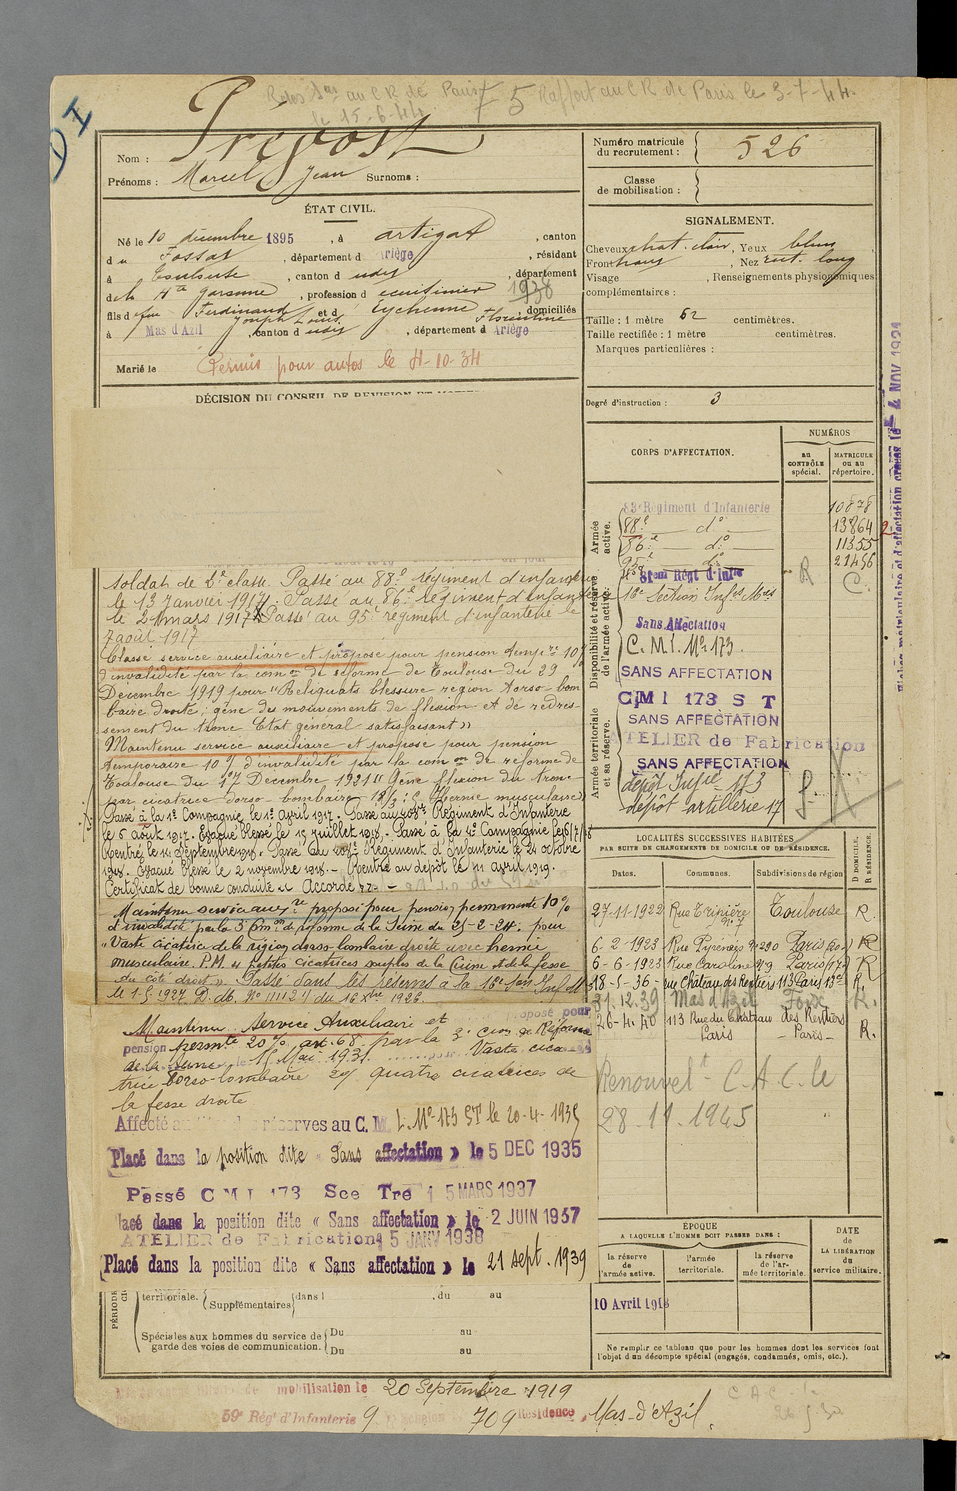 D I
Rdos 1er au CR de Paris
le 15-6-44
F 5 Raffort au CR de Paris le 3-7-44.
Nom : Prévost
Prénoms : Marcel Jean Surnoms :
ÉTAT CIVIL.
Né le 10 décembre 1895, à Artigat, canton
du Fossat, département d Ariège, résidant
à Toulouse, canton d udit, département
de la Hte Garonne, profession d ecuisinier 1938
fils d feu Ferdinand Joseph Louis et d Eychenne Florentine, domiciliés
à Mas d'Azil, canton d udit, département d Ariège
Marié le Permis pour autos le 4-10-34
DÉCISION DU CONSEIL DE REVISION ET
soldat de 2e classe. Passé au 88e régiment d'infanterie
le 13 Janvier 1917. Passé au 86e Régiment d'Infanterie
le 21 mars 1917. Passé au 95e régiment d'infanterie le
7 août 1917
Classé service auxiliaire et proposé pour pension tempre 10%
d'invalidité par la comon de réforme de Toulouse du 29
Décembre 1919 pour "Reliquats blessure région dorso lom
baire droite; gêne des mouvements de flexion et de redres-
sement du tronc Etat général satisfaisant"
Maintenu service auxiliaire et proposé pour pension
temporaire 10% d'invalidité par la comon de réforme de
Toulouse du 17 Décembre 1921 "Gêne flexion du tronc
par cicatrice dorso-lombaire 18/3; Hernie musculaire"
Passé à la 1e Compagnie le 1er Avril 1917. Passé au 408e Régiment d'Infanterie
le 6 août 1917. Evacué blessé le 15 juillet 1918. Passé à la 4e Compagnie le 16/7/18
Rentré le 14 Septembre 1918. Passé au 408e Régiment d'Infanterie le 24 octobre
1918. Evacué Blessé le 2 novembre 1918. - Rentré au dépôt le 11 avril 1919.
Certificat de bonne conduite "Accordé".
Maintenu service auxre proposé pour pension permanente 10%
d'invalidité par la 3e Comon de réforme de la Seine du 21-2-24: pour
"Vaste cicatrice de la région dorso-lombaire droite avec hernie
musculaire. P.M. et petites cicatrices souples de la Cuisse et de la fesse
du côté droit". Passé dans les réserves à la 18e Son Inf M
le 1-5-1927. D. M. No 11112 du 16 Xbre 1926.
Maintenu Service Auxiliaire et proposé pour
pension permte 20% art. 68 par la 3e Cion de Réforme
de la Seine le 15 Mai 1931. Vaste cica
trice dorso-lombaire 2°/ quatre cicatrices de
la fesse droite
Affecté aux réserves au C. M. I. No 173 ST le 20-4-1935
Placé dans la position dite « Sans affectation » le 5 DEC 1935
Passé C M I 173 Sce Tre 15 MARS 1937
Placé dans la position dite « Sans affection » le 2 JUIN 1937
ATELIER de Fabrication 15 JANV 1938
Placé dans la position dite « Sans affectation » le 21 sept. 1939
PÉRIODE
territoriale. Supplémentaires dans l , du au
Spéciales aux hommes du service de garde des voies de communication. Du au
Du au
mobilisation le 20 Septembre 1919
59e Rég d'Infanterie 9 Echelon 709 Résidence Mas-d'Azil.
Numéro matricule du recrutement : 526
Classe de mobilisation :
SIGNALEMENT.
Cheveux chat. clair, Yeux bleus
Front moy Nez rect. long
Visage , Renseignements physionomiques
complémentaires :
Taille : 1 mètre 62 centimètres.
Taille rectifiée : 1 mètre centimètres.
Marques particulières :
Degré d'instruction : 3
CORPS D'AFFECTATION.
NUMÉROS
au CONTRÔLE spécial.
MATRICULE ou au répertoire.
Armée active.
83e Régiment d'Infanterie 10878
88e do 13864
86e do 11355
95e do 21456
Disponibilité et réserve de l'armée active.
Régt d'Infie R C.
18e Section Infres Mres
Sans Affectation
C. M. I. No 173.
SANS AFFECTATION
CMI 173 S T
Armée territoriale et sa réserve.
SANS AFFECTATION
ATELIER de Fabrication
SANS AFFECTATION
dépôt Infie 173
dépôt artillerie 17
4 NOV 1921
LOCALITÉS SUCCESSIVES HABITÉES
PAR SUITE DE CHANGEMENTS DE DOMICILE OU DE RÉSIDENCE.
Dates. Communes. Subdivisions de région D DOMICILE. R RÉSIDENCE.
27-11-1922 Rue Tripière no 7 Toulouse R.
6-2-1923 Rue Pyrenées no 290 Paris (20e) R
6-6-1923 Rue Caroline no 9 Paris (17e) R
18-5-36 rue Château des Rentiers 113 Paris 13e R.
31.12.39 Mas d'Azil Foix R.
26-4.40 113 Rue du Château des Rentiers
Paris - Paris - R.
Renouvelt C.A.C. le
28.11.1945
ÉPOQUE
A LAQUELLE L'HOMME DOIT PASSER DANS :
DATE de LA LIBÉRATION du service militaire.
la réserve de l'armée active.
l'armée territoriale.
la réserve de l'armée territoriale.
10 Avril 1918
Ne remplir ce tableau que pour les hommes dont les services font
l'objet d'un décompte spécial (engagés, condamnés, omis, etc.).
C A C